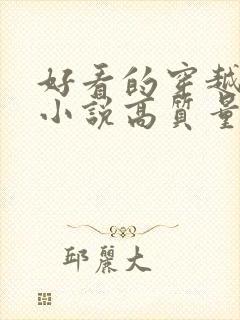 好看的穿越
小說高質量
邱麗大